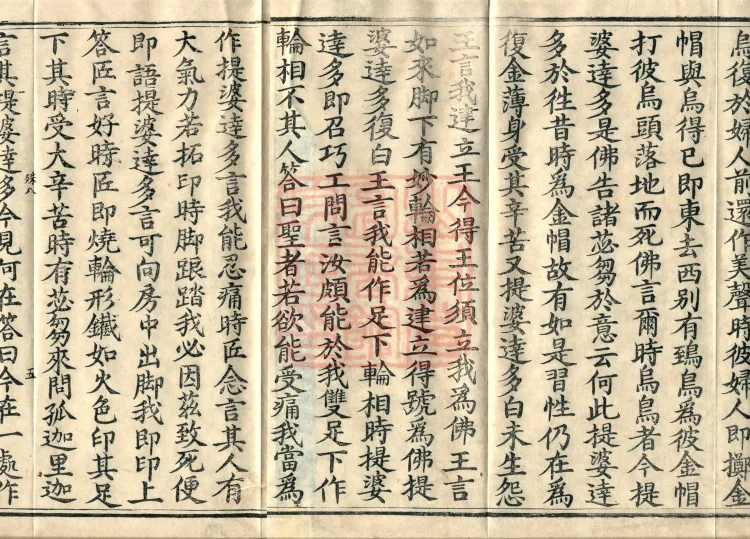 烏復於婦人前還作美聲時彼婦人即擲金
帽與烏得已即東去西別有鵄烏爲彼金帽
打彼烏頭落地而死佛言爾時烏鳥者今提
婆達多是佛告諸苾芻於意云何此提婆達
多於徃昔時爲金帽故有如是習性仍在爲
復金薄身受其辛苦又提婆達多白未生怨
王言我達立王今得王位須立我爲佛王言
如來脚下有妙輪相若爲建立得號爲佛提
婆達多復白王言我能作足下輪相時提婆
達多即召巧工問言汝頗能於我雙足下作
輪相不其人答曰聖者若欲能受痛我當爲
作提婆達多言我能忍痛時匠念言其人有
大氣力若拓印時脚踉踏我必因茲致死便
即語提婆達多言可向房中出脚我即印上
答匠言好時匠即燒輪形鐵如火色印其足
下其時受大辛苦時有苾芻來問孤迦里迦
殊八 五
言其提婆達多今見何在答曰今在一處作